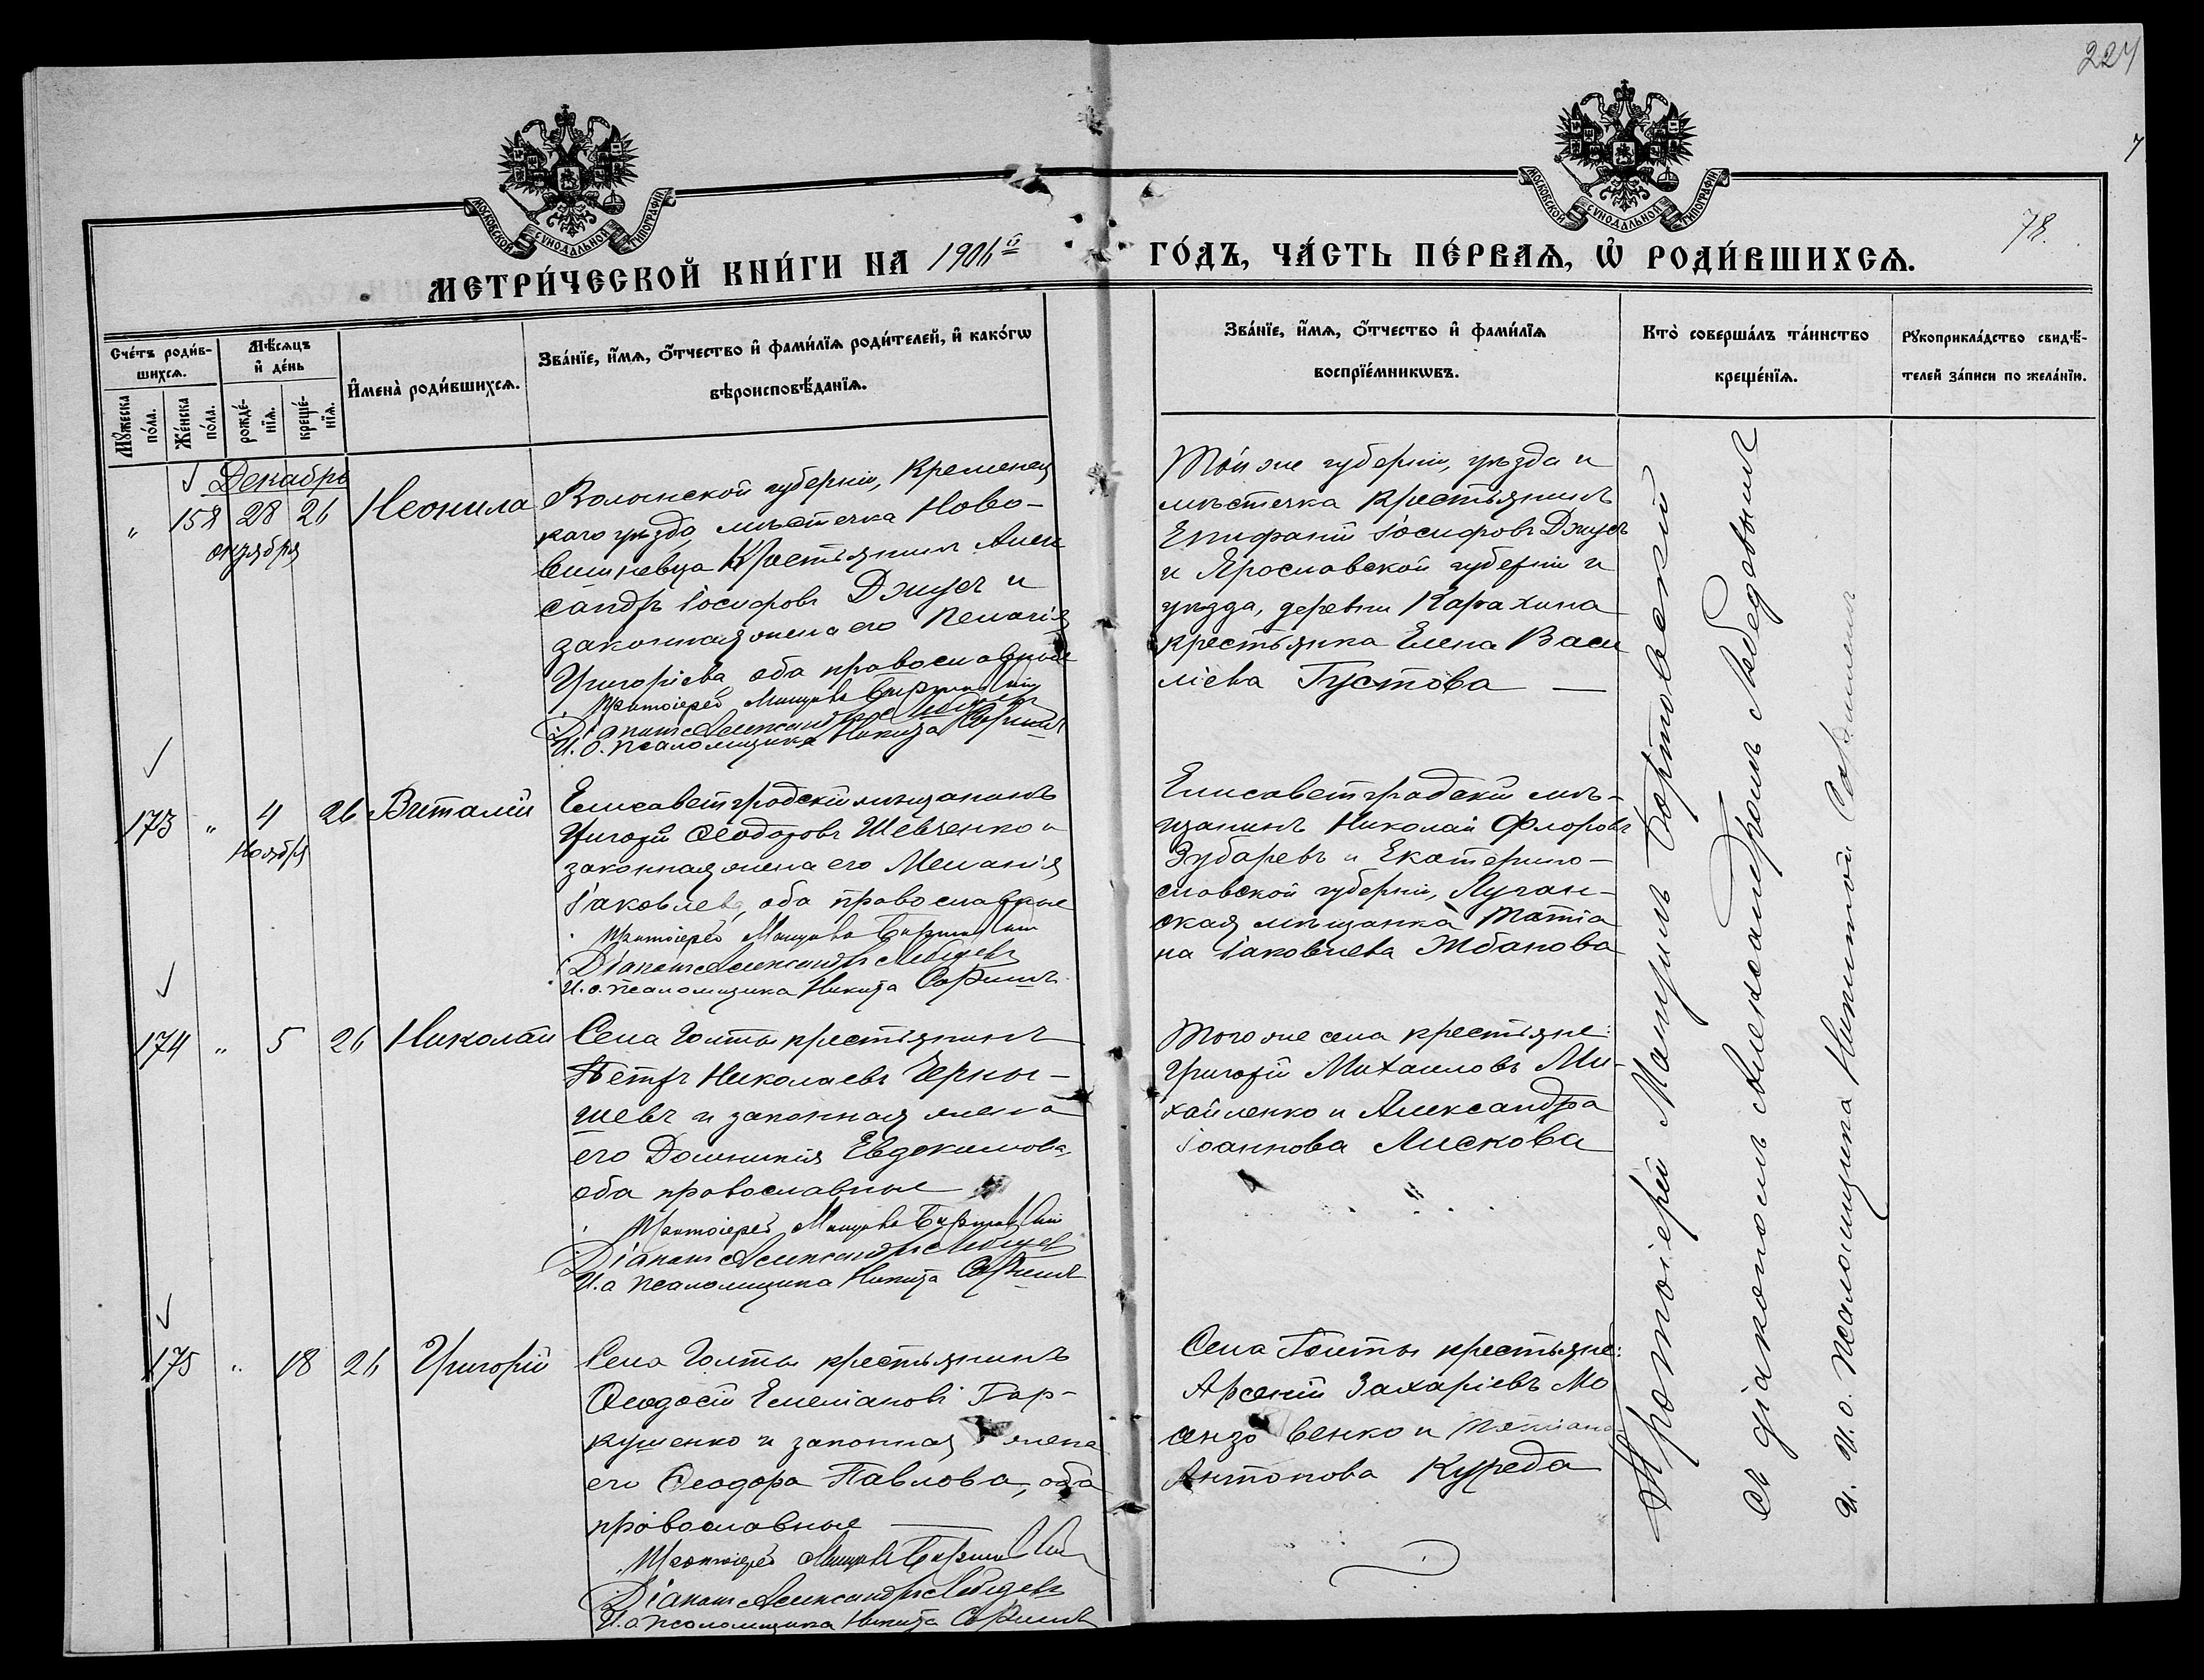 224
7
78.
МОСКОВСКОЙ СѴНОДАЛЬНОЙ ТИПОГРАФІИ
МОСКОВСКОЙ СѴНОДАЛЬНОЙ ТИПОГРАФІИ
МЕТРИ́ЧЕСКОЙ КНИ́ГИ НА 1906й ГО́ДЪ, ЧА́СТЬ ПЕ́РВАѦ, Ѡ҆ РОДИ́ВШИХСѦ.
Сче́тъ роди́в-
шихсѧ.
Мꙋ́жеска
по́ла.
Же́нска
по́ла.
Мѣ́сѧцъ
и҆ де́нь
рожде́-
нїѧ.
креще́-
нїѧ.
И҆мена̀ роди́вшихсѧ.
Зва́нїе, и҆́мѧ, ѻ҆́тчество и҆ фами́лїѧ роди́телей, и҆ како́гѡ
вѣроисповѣ́данїѧ.
Зва́нїе, и҆́мѧ, ѻ҆́тчество и҆ фами́лїѧ
воспрїе́мникѡвъ.
Кто̀ соверша́лъ та́инство
креще́нїѧ.
Рꙋкоприкла́дство свидѣ́-
телей за́писи по жела́нїю.
Декабрь
" 158 28 26 Неонила
октября
Волынской губерніи, Кременец
каго уѣзда, мѣстечка Ново-
Вишневца Крестьянинъ Алек
сандръ Іосифовъ Джусъ и
законная жена его Пелагія
Григоріева оба православные
Протоіерей Мануилъ Бортовскій
Діаконъ Александръ Лебедевъ
И. о. псаломщика Никита
Той же губерніи, уѣзда и
мѣстечка крестьянинъ
Епифаній Іосифовъ Джусъ
и Ярославской губерніи и
уѣзда, деревни Карахина
крестьянка Елена Васи
ліева Густова —
173 " 4 26 Виталій
Ноября
Елисаветградскій мѣщанинъ
Григорій Ѳеодоровъ Шевченко и
законная жена его Меланія
Іаковлева, оба православные
Протоіерей Мануилъ Бортовскій
Діаконъ Александръ Лебедевъ
И. о. псаломщика Никита
Елисаветградскій мѣ-
щанинъ Николай Флоровъ
Зубаревъ и Екатерино-
славской губерніи, Луган-
ская мѣщанка Татіа
на Іаковлева Жбанова
174 " 5 26 Николай
Села Голты крестьянинъ
Петръ Николаевъ Черны-
шевъ и законная жена
его Домникія Евдокимова,
оба православные
Протоіерей Мануилъ Бортовскій
Діаконъ Александръ Лебедевъ
И. о псаломщика Никита
Того же села крестьяне:
Григорій Михаиловъ Ми-
хайленко и Александра
Іоаннова Лискова
175 " 18 26 Григорій
Села Голты крестьянинъ
Ѳеодосій Емеліановъ Гар-
кушенко и законная жена
его Ѳеодора Павлова, оба
православные
Протоіерей Мануилъ Бортовскій
Діаконъ Александръ Лебедевъ
И. о псаломщика Никита
Села Голты крестьяне:
Арсеній Захаріевъ Мо
сензовенко и Татіана
Антонова Куреда
Протоіерей Мануилъ Бортовскій
съ діакономъ Александромъ Лебедевымъ
и. и. о. псаломщика Никитой